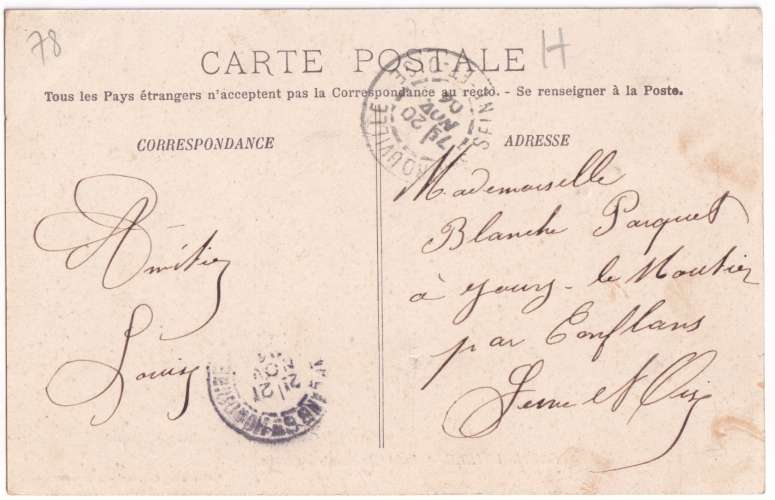 78
CARTE POSTALE
H
Tous les Pays étrangers n'acceptent pas la Correspondance au recto. - Se renseigner à la Poste.
CORRESPONDANCE
ADRESSE
20
NOV
04
SEINE-ET-OISE
Amitiés
Louise
Mademoiselle
Blanche Parquet
à Jouy-le Moutier
par Conflans
Seine et Oise
21
NOV